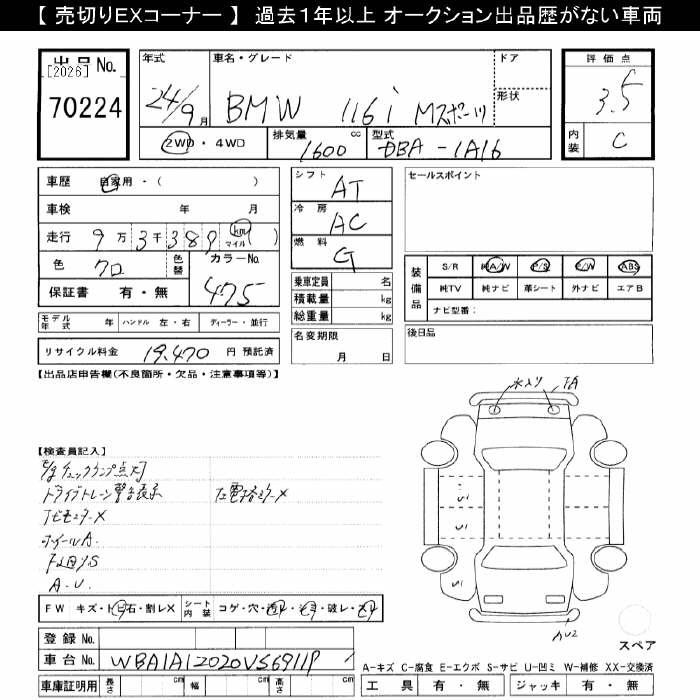 【 売切りEXコーナー 】 過去１年以上 オークション出品歴がない車両
出品 No.
[2026]
70224
年式
24/9月
車名・グレード
BMW 116i Mスポーツ
ドア
形状
評価点
3.5
内装
C
2WD・4WD
排気量
1600 cc
型式
DBA-1A16
車歴 自家用・( )
車検 年 月
走行 9万3千389 km マイル ( )
色 クロ
色替
カラーNo.
475
保証書 有・無
シフト
AT
冷房
AC
燃料
G
乗車定員 名
積載量 kg
総重量 kg
セールスポイント
装備品
S/R 純A/W P/S P/W ABS
純TV 純ナビ 革シート 外ナビ エアB
ナビ型番：
モデル年式 年 ハンドル 左・右 ディーラー・並行
リサイクル料金 19,470 円 預託済
名変期限
月 日
後日品
【出品店申告欄(不良箇所・欠品・注意事項等)】
水入り
【検査員記入】
チェックランプ点灯
ドライブトレーン警告表示
ナビモニターX
ホイールA
A・U
FW キズ・トビ石・割レX
シート内装
コゲ・穴・汚レ・シミ・破レ・スレ
U1
U1
U1
AU2
スペア
登録 No.
車台 No. WBA1A12020VS6911P
A-キズ C-腐食 E-エクボ S-サビ U-凹ミ W-補修 XX-交換済
車庫証明用 長さ cm 幅 cm 高さ cm
工具 有・無 ジャッキ 有・無